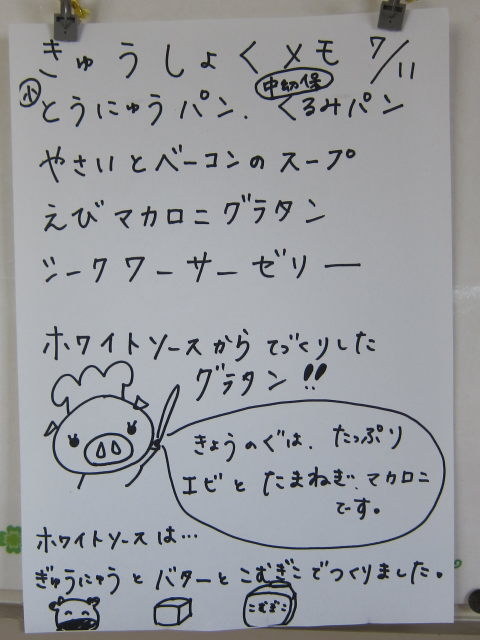 きゅうしょくメモ 7/11
小 とうにゅうパン、 中幼保 くるみパン
やさいとベーコンのスープ
えびマカロニグラタン
シークワーサーゼリー
ホワイトソースからてづくりした
グラタン!!
きょうのぐは、たっぷり
エビとたまねぎ、マカロニ
です。
ホワイトソースは…
ぎゅうにゅうとバターとこむぎこでつくりました。
こむぎこ